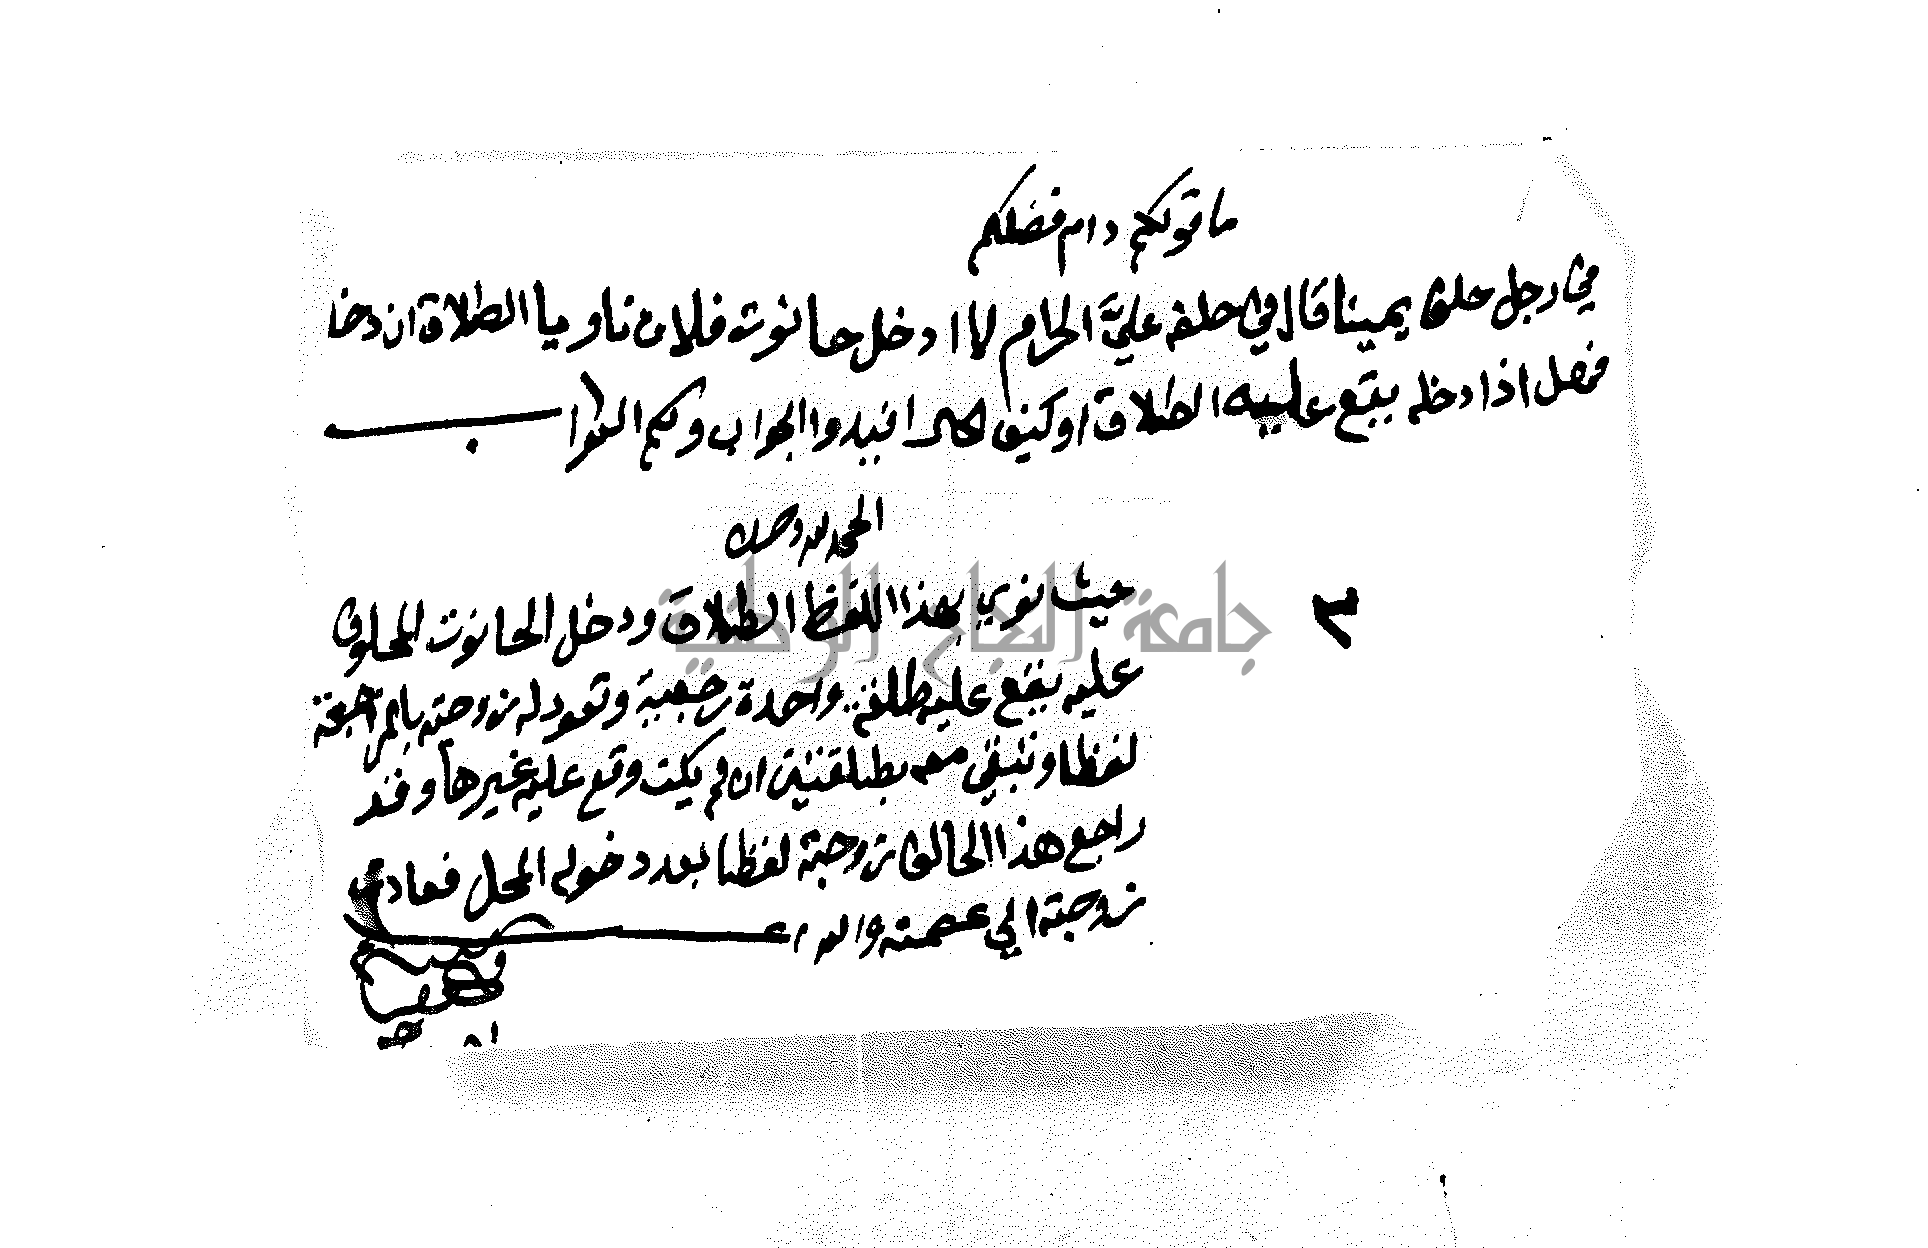 ما قولكم دام فضلكم
في رجل حلف يمينا قال في حلفه عليَّ الحرام لا ادخل حانوت فلان ناويا الطلاق ان دخل
فهل اذا دخله يقع عليه الطلاق او كيف الحال افيدوا الجواب ولكم الثواب
الحمد لله وحده
حيث نوي بهذا اللفظ الطلاق ودخل الحانوت المحلوف
عليه يقع عليه طلقة واحدة رجعية وتعود له زوجته بالمراجعة
لفظا وتبقي معه بطلقتين ان لم يكن وقع عليه غيرها وقد
راجع هذا الحالف زوجته لفظا بعد دخوله المحل فعادت
زوجته الي عصمته والله اعلم
جامعة النجاح الوطنية
٣